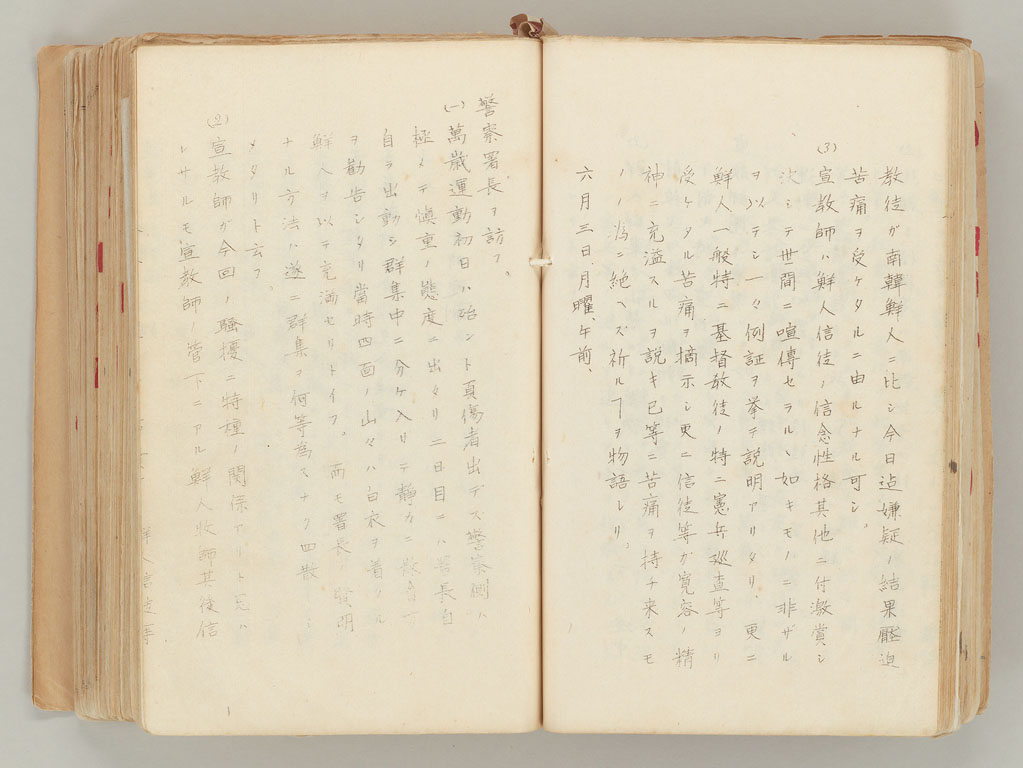 教徒ガ南韓鮮人ニ比シ今日迠嫌疑ノ結果壓迫
苦痛ヲ受ケタルニ由ルナル可シ、
(3)宣教師ハ鮮人信徒ノ信念性格其他ニ付激賞シ
決シテ世間ニ喧傳セラルヽ如キモノニ非ザル
ヲ以テシ一々例証ヲ挙テ説明アリタリ、更ニ
鮮人一般特ニ基督教徒ノ特ニ憲兵巡査等ヨリ
受ケタル苦痛ヲ摘示シ更ニ信徒等ガ寛容ノ精
神ニ充溢スルヲ説キ己等ニ苦痛ヲ持チ来スモ
ノノ為ニ絶ヘズ祈ルヿヲ物語レリ。
六月三日、月曜、午前、
警察署長ヲ訪フ、
(一)萬歳運動初日ハ殆ント負傷者出デズ警察側ハ
極メテ慎重ノ態度ニ出タリ二日目ニハ署長自
自ラ出動シ群集中ニ分ケ入リテ静カニ散
ヲ勸告シタリ當時四面ノ山々ハ白衣ヲ着タル
鮮人ヲ以テ充満セリトイフ。而モ署長ノ賢明
ナル方法ハ遂ニ群集ヲ何等為スナク四散シ
メタリト云フ。
(2)宣教師ガ今回ノ騒擾ニ特種ノ関係アリト見ハ
レサルモ宣教師ノ管下ニアル鮮人牧師其徒信